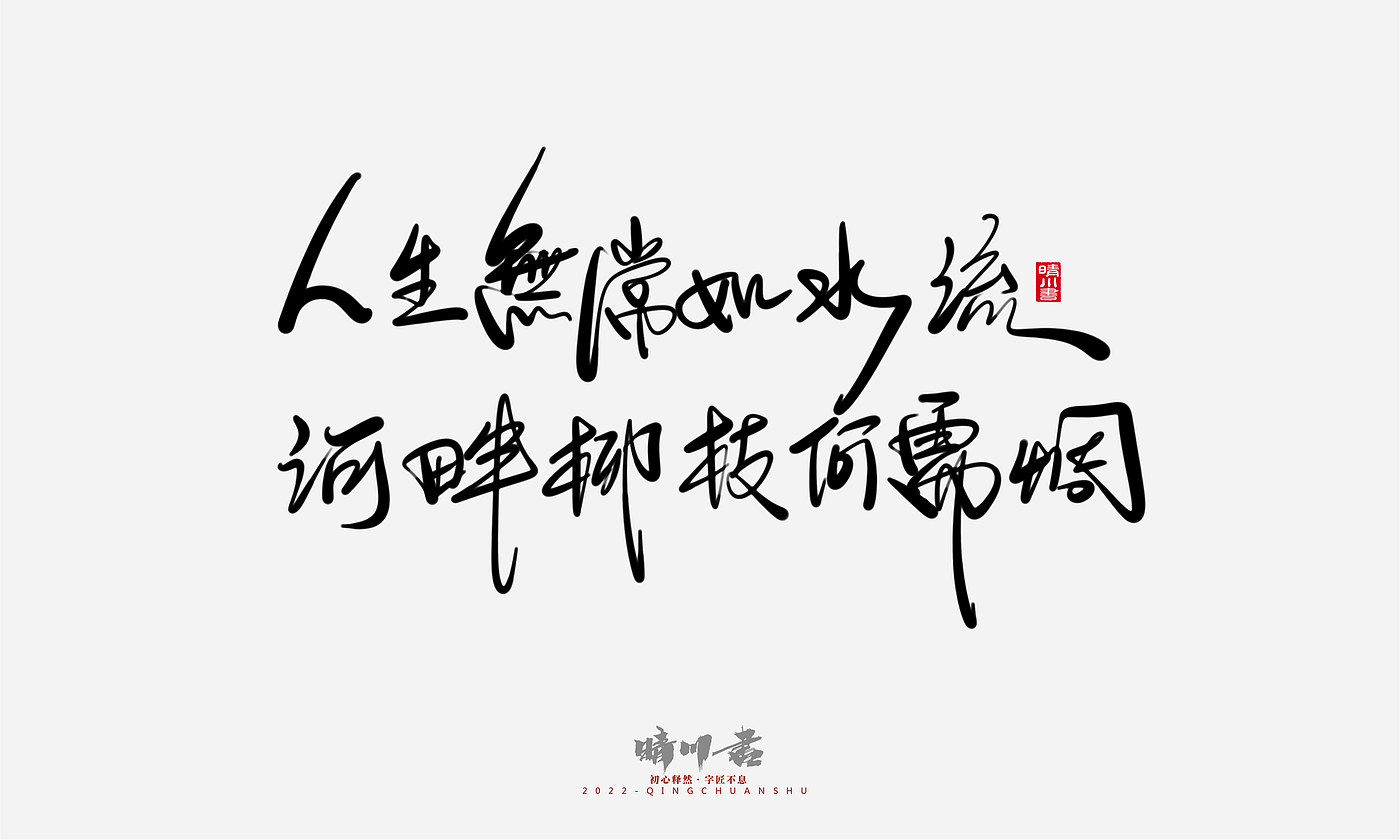 人生無常如水流
晴川書
河畔柳枝何需惆
晴川書
初心释然·字匠不息
2022-QINGCHUANSHU